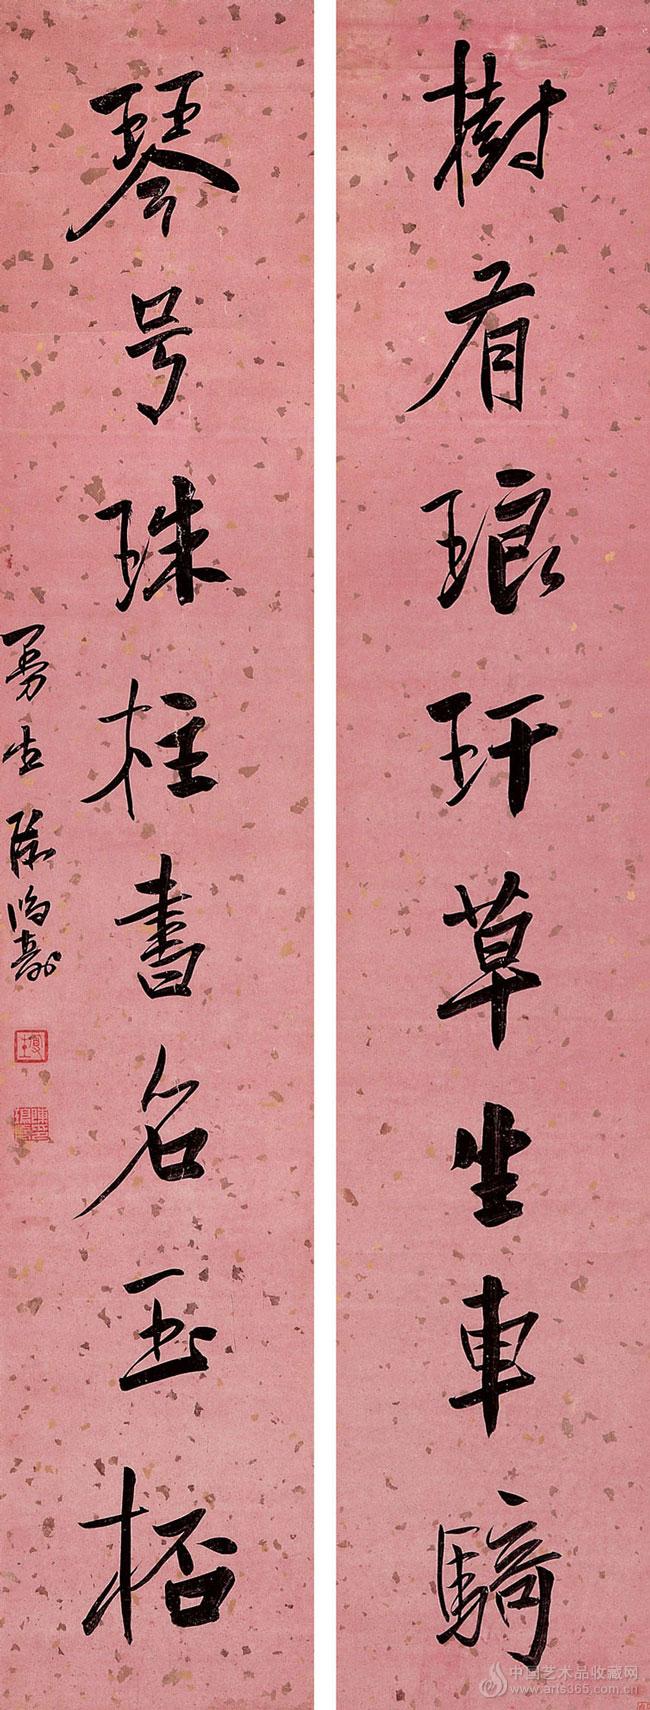 樹有琅玕草生車騎
琴号珠柱書名玉桮
曼生陳鴻壽
中国艺术品收藏网
www.arts365.com.cn